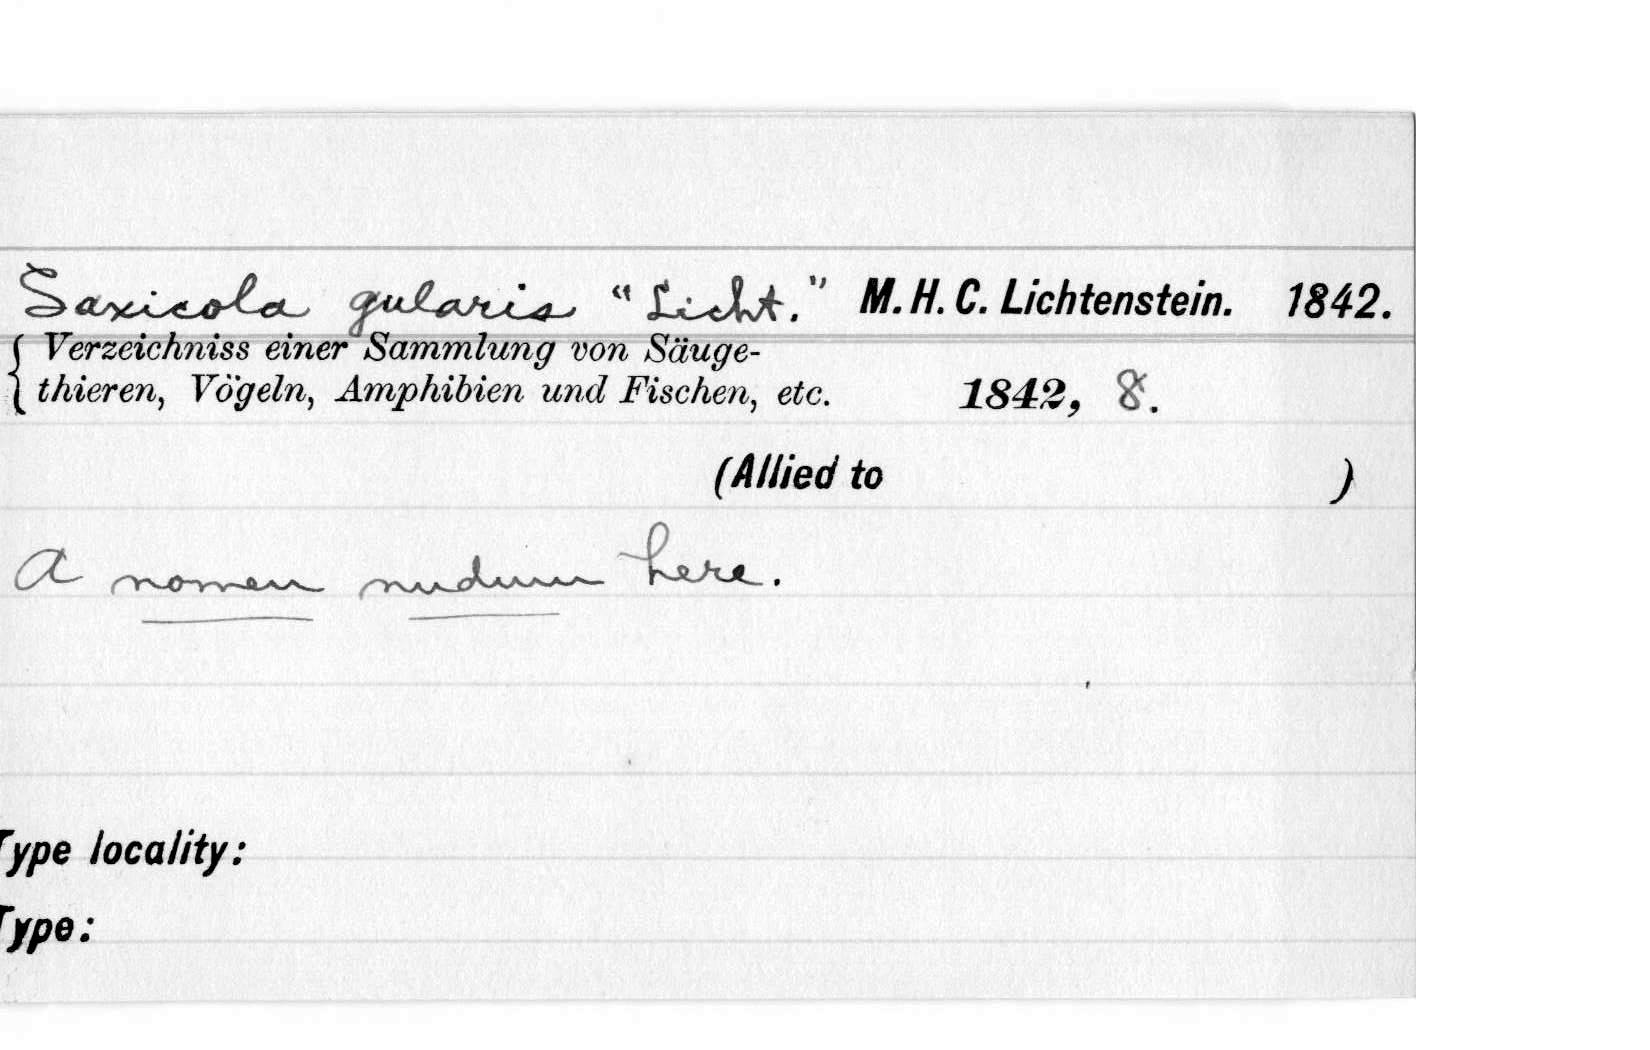 Saxicola gularis "Licht." M. H. C. Lichtenstein. 1842.
Verzeichniss einer Sammlung von Säuge-
thieren, Vögeln, Amphibien und Fischen, etc. 1842, 8.
(Allied to )
A nomen nudum here.
Type locality:
Type: